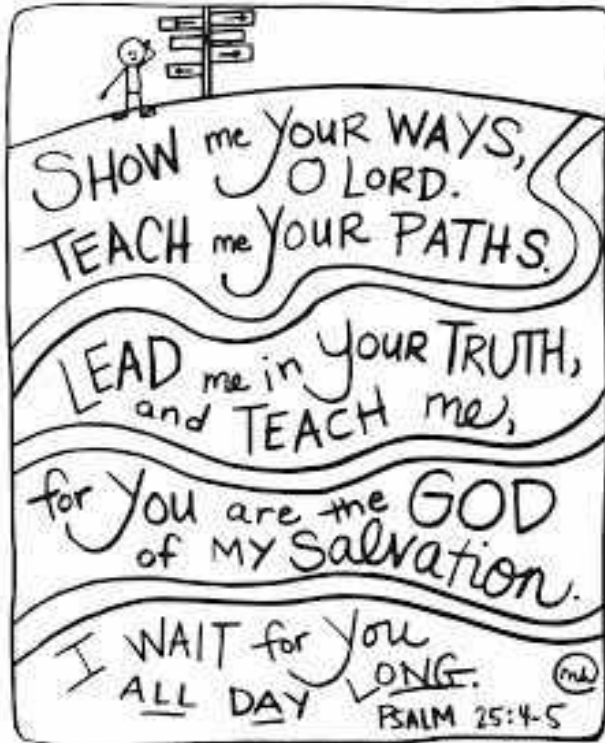 SHOW me YOUR WAYS,
O LORD.
TEACH me YOUR PATHS.
LEAD me in YOUR TRUTH,
and TEACH me,
for You are the GOD
of MY Salvation.
I WAIT for You
ALL DAY LONG.
PSALM 25:4-5